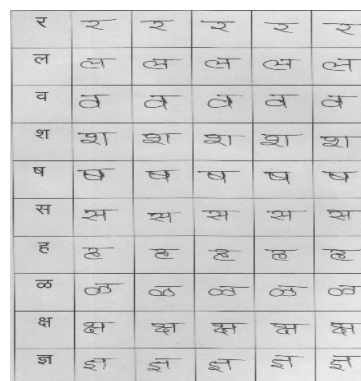 र र र र र र
ल ल ल ल ल ल
व व व व व व
श श श श श श
ष ष ष ष ष ष
स स स स स स
ह ह ह ह ह ह
ळ ळ ळ ळ ळ ळ
क्ष क्ष क्ष क्ष क्ष क्ष
ज्ञ ज्ञ ज्ञ ज्ञ ज्ञ ज्ञ